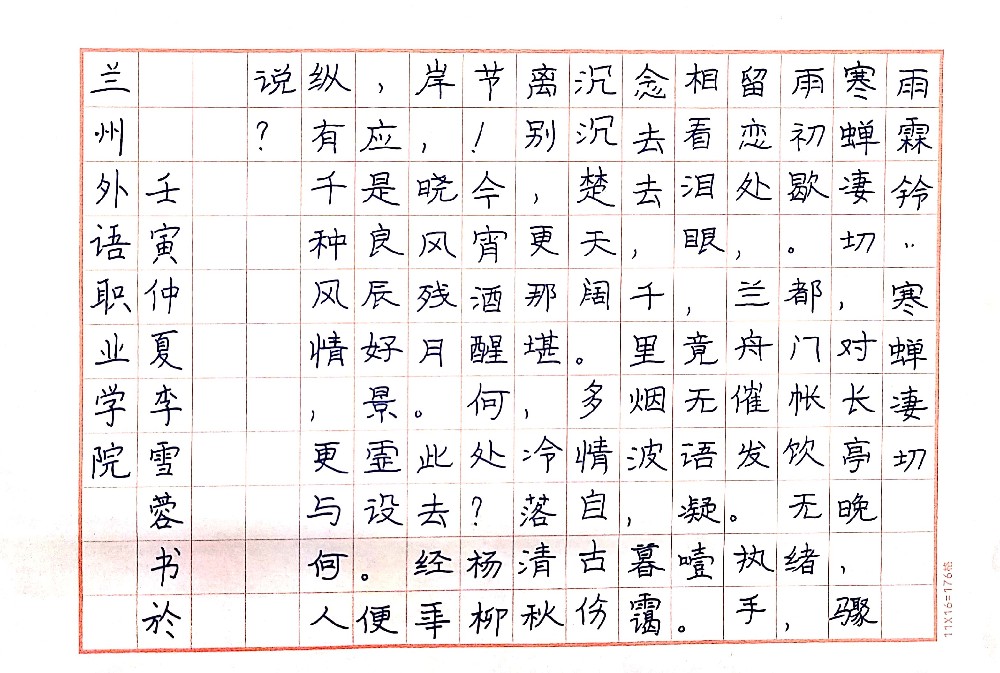 雨霖铃:寒蝉凄切
寒蝉凄切,对长亭晚,骤
雨初歇。都门帐饮无绪,
留恋处,兰舟催发。执手
相看泪眼,竟无语凝噎。
念去去,千里烟波,暮霭
沉沉楚天阔。多情自古伤
离别,更那堪,冷落清秋
节!今宵酒醒何处?杨柳
岸,晓风残月。此去经年
,应是良辰好景虚设。便
纵有千种风情,更与何人
说?
壬寅仲夏李雪蓉书於
兰州外语职业学院
11X16=176格